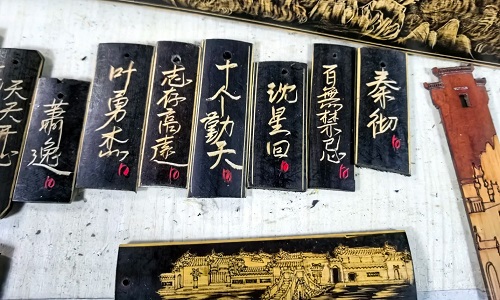 天天开心
蕭逸
10
叶勇杰
10
志存高遠
10
十个勤天
10
沈星回
10
百無禁忌
10
秦彻
10